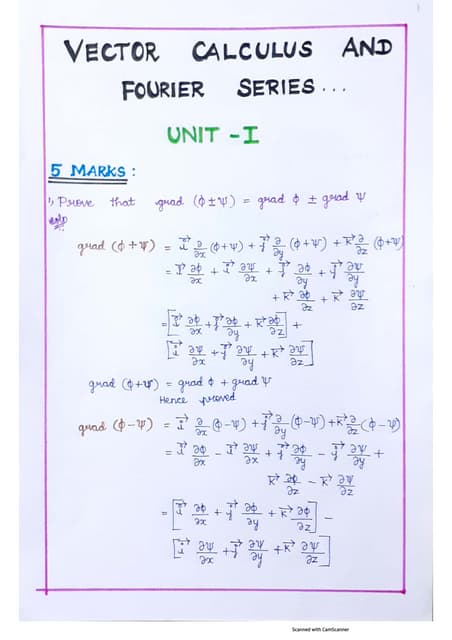 VECTOR CALCULUS AND
FOURIER SERIES...
UNIT -I
5 MARKS :
1) Prove that grad (ϕ±ψ) = grad ϕ ± grad ψ
soln
grad (ϕ+ψ) = i⃗ ∂/∂x (ϕ+ψ) + j⃗ ∂/∂y (ϕ+ψ) + k⃗ ∂/∂z (ϕ+ψ)
= i⃗ ∂ϕ/∂x + i⃗ ∂ψ/∂x + j⃗ ∂ϕ/∂y + j⃗ ∂ψ/∂y
+ k⃗ ∂ϕ/∂z + k⃗ ∂ψ/∂z
= [i⃗ ∂ϕ/∂x + j⃗ ∂ϕ/∂y + k⃗ ∂ϕ/∂z] +
[i⃗ ∂ψ/∂x + j⃗ ∂ψ/∂y + k⃗ ∂ψ/∂z]
grad (ϕ+ψ) = grad ϕ + grad ψ
Hence proved
grad (ϕ-ψ) = i⃗ ∂/∂x (ϕ-ψ) + j⃗ ∂/∂y (ϕ-ψ) + k⃗ ∂/∂z (ϕ-ψ)
= i⃗ ∂ϕ/∂x - i⃗ ∂ψ/∂x + j⃗ ∂ϕ/∂y - j⃗ ∂ψ/∂y +
k⃗ ∂ϕ/∂z - k⃗ ∂ψ/∂z
= [i⃗ ∂ϕ/∂x + j⃗ ∂ϕ/∂y + k⃗ ∂ϕ/∂z] -
[i⃗ ∂ψ/∂x + j⃗ ∂ψ/∂y + k⃗ ∂ψ/∂z]
Scanned with CamScanner